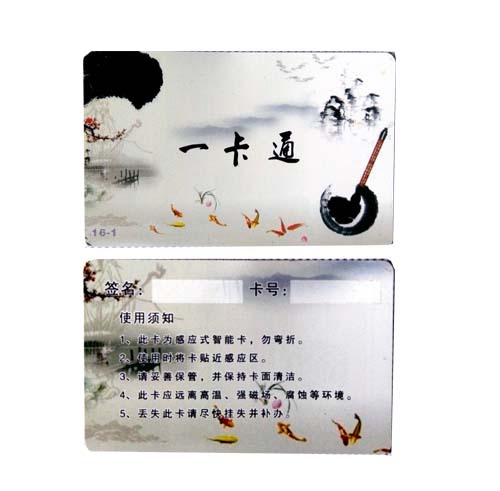 一卡通
16-1
签名： 卡号：
使用须知
1、此卡为感应式智能卡，勿弯折。
2、使用时将卡贴近感应区。
3、请妥善保管，并保持卡面清洁。
4、此卡应远离高温、强磁场、腐蚀等环境。
5、丢失此卡请尽快挂失并补办。